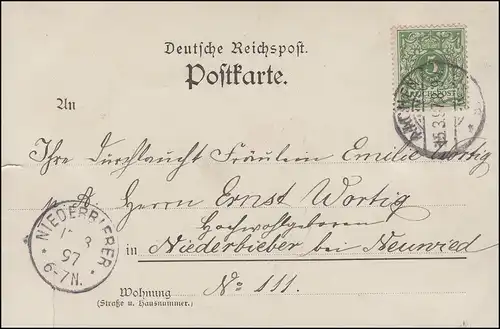 Deutsche Reichspost.
Postkarte.
An
Ihre Durchlaucht Fräulein Emilie Wortig
p. A. Herrn Ernst Wortig
Hochwohlgeboren
in Niederbieber bei Neuwied
Wohnung No 111.
(Straße u. Hausnummer.)
NIEDERBIEBER
97
6-7N.
5